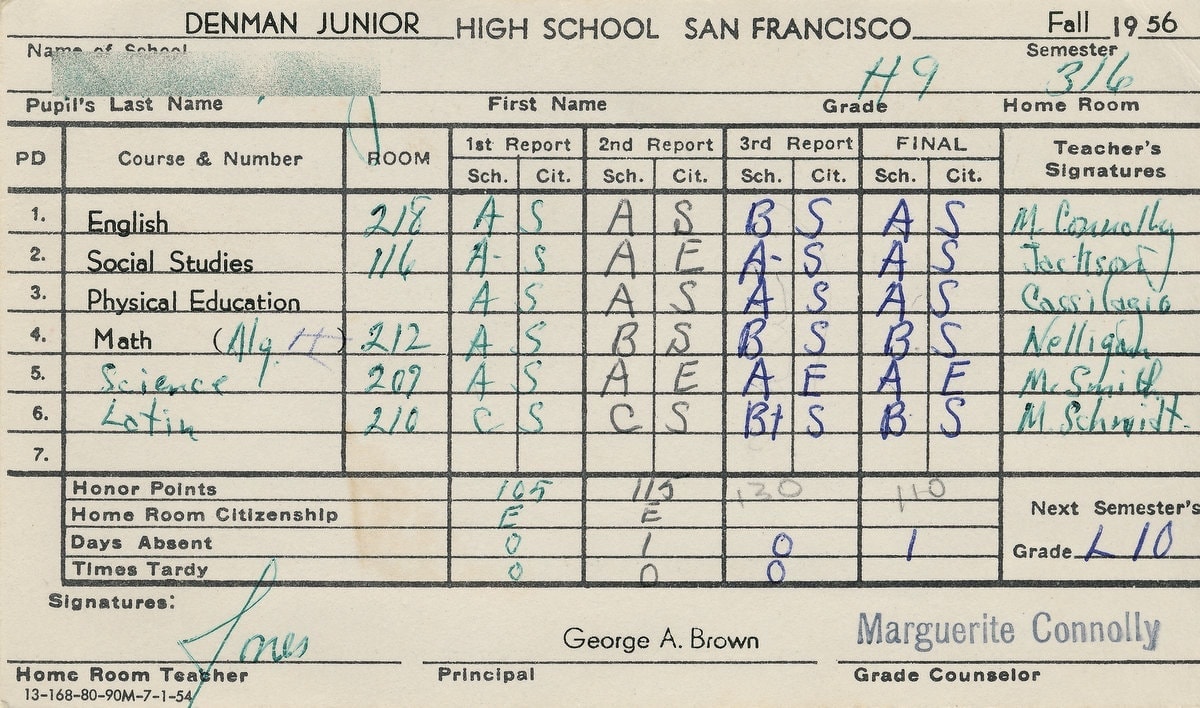 DENMAN JUNIOR HIGH SCHOOL SAN FRANCISCO Fall 1956
Name of School Semester
H9 316
Pupil's Last Name First Name Grade Home Room
PD Course & Number ROOM 1st Report 2nd Report 3rd Report FINAL Teacher's Signatures
Sch. Cit. Sch. Cit. Sch. Cit. Sch. Cit.
1. English 218 A S A S B S A S M. Connolly
2. Social Studies 116 A- S A E A- S A S Jackson
3. Physical Education A S A S A S A S
4. Math (Alg. H) 212 A S B S B S B S Nelligan
5. Science 209 A S A E A E A E McSmith
6. Latin 210 C S C S B+ S B S M. Schmidt.
7.
Honor Points 105 115 130 110
Home Room Citizenship E E
Days Absent 0 1 0 1
Times Tardy 0 0 0
Next Semester's
Grade L10
Signatures:
Jones George A. Brown Marguerite Connolly
Home Room Teacher Principal Grade Counselor
13-168-80-90M-7-1-54